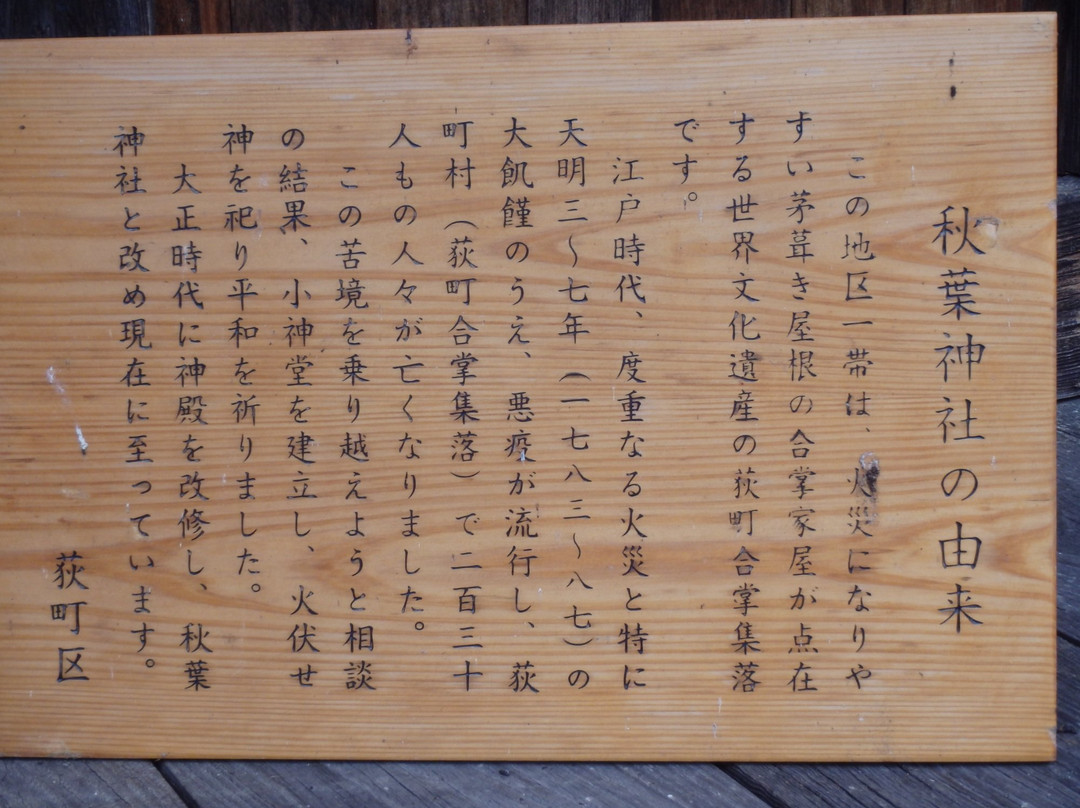 秋葉神社の由来
この地区一帯は、火災になりや
すい茅葺き屋根の合掌家屋が点在
する世界文化遺産の荻町合掌集落
です。
江戸時代、度重なる火災と特に
天明三～七年（一七八三～八七）の
大飢饉のうえ、悪疫が流行し、荻
町村（荻町合掌集落）で二百三十
人もの人々が亡くなりました。
この苦境を乗り越えようと相談
の結果、小神堂を建立し、火伏せ
神を祀り平和を祈りました。
大正時代に神殿を改修し、秋葉
神社と改め現在に至っています。
荻町区